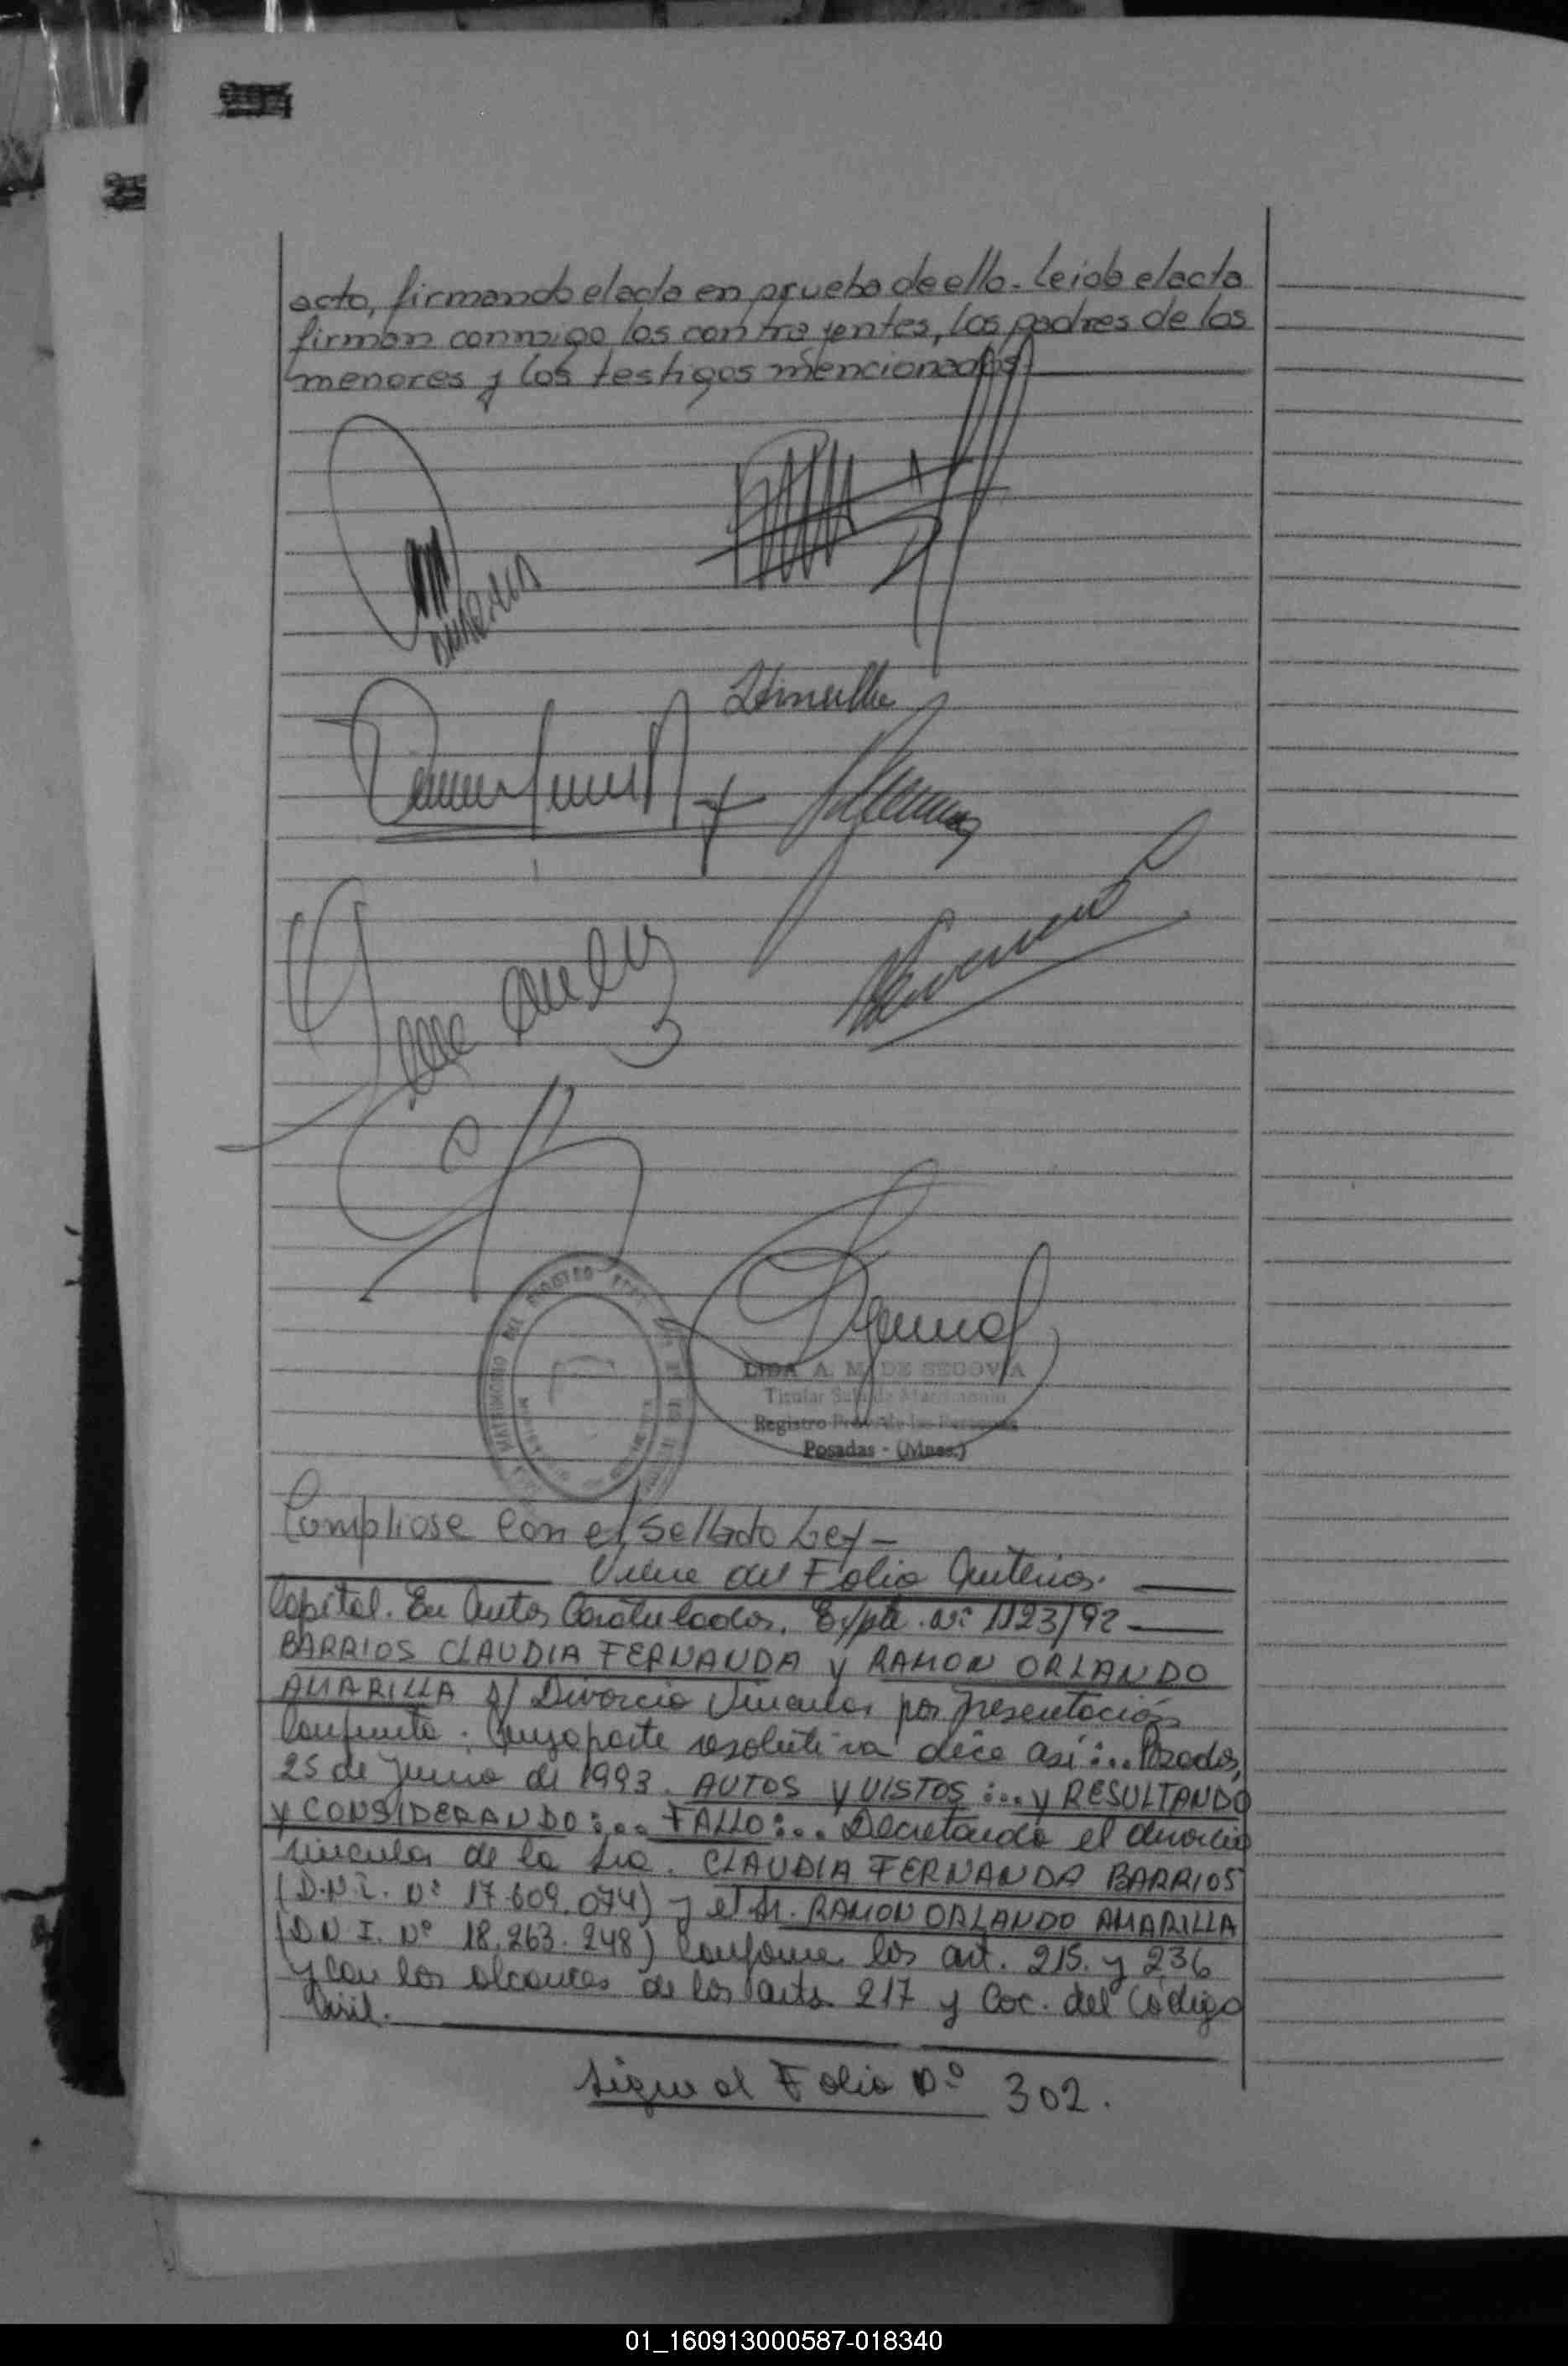 acto, firmando el acta en prueba de ello. Leida el acta
firman conmigo los contrayentes, los padres de los
menores y los testigos mencionados.
LIDA A. M. DE SEGOVIA
Titular Sala de Matrimonio
Registro Prov. de las Personas
Posadas - (Mnes.)
Cumpliose con el Sellado Ley -
Viene del Folio Anterior.
Capital. En Autos Caratulados. Expte. Nº 1123/92
BARRIOS CLAUDIA FERNANDA y RAMON ORLANDO
AMARILLA s/ Divorcio Vincular por Presentación
Conjunta. Cuya parte resolutiva dice así:... Posadas,
25 de Junio de 1993. AUTOS Y VISTOS:... y RESULTANDO
Y CONSIDERANDO:... FALLO:... Decretando el divorcio
vincular de la Sra. CLAUDIA FERNANDA BARRIOS
(D.N.I. Nº 17.609.074) y el Sr. RAMON ORLANDO AMARILLA
(D.N.I. Nº 18.263.248) conforme los art. 215. y 236
y con los alcances de los arts 217 y Coc. del Código
Civil.
Sigue al Folio Nº 302.
01_160913000587-018340